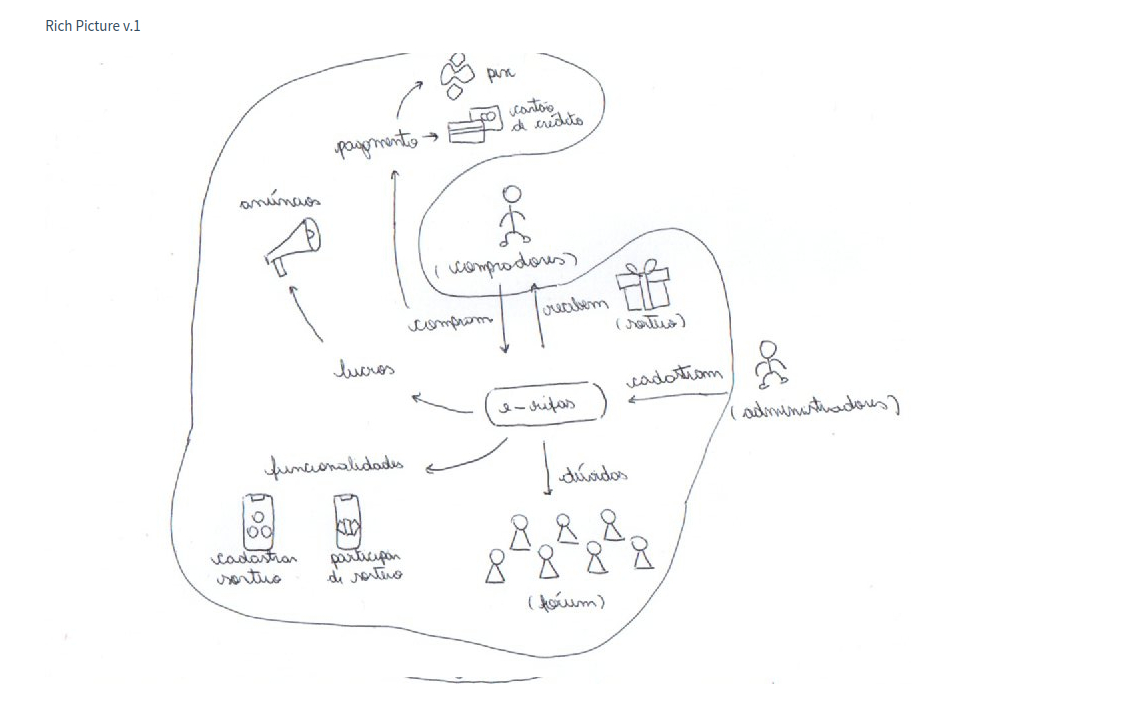 Rich Picture v.1
pix
cartão
de crédito
pagamento
anúncios
(compradores)
compram
recebem
(sorteio)
lucros
cadastram
e-rifas
(administradores)
funcionalidades
dúvidas
cadastrar
sorteio
participar
de sorteio
(fórum)